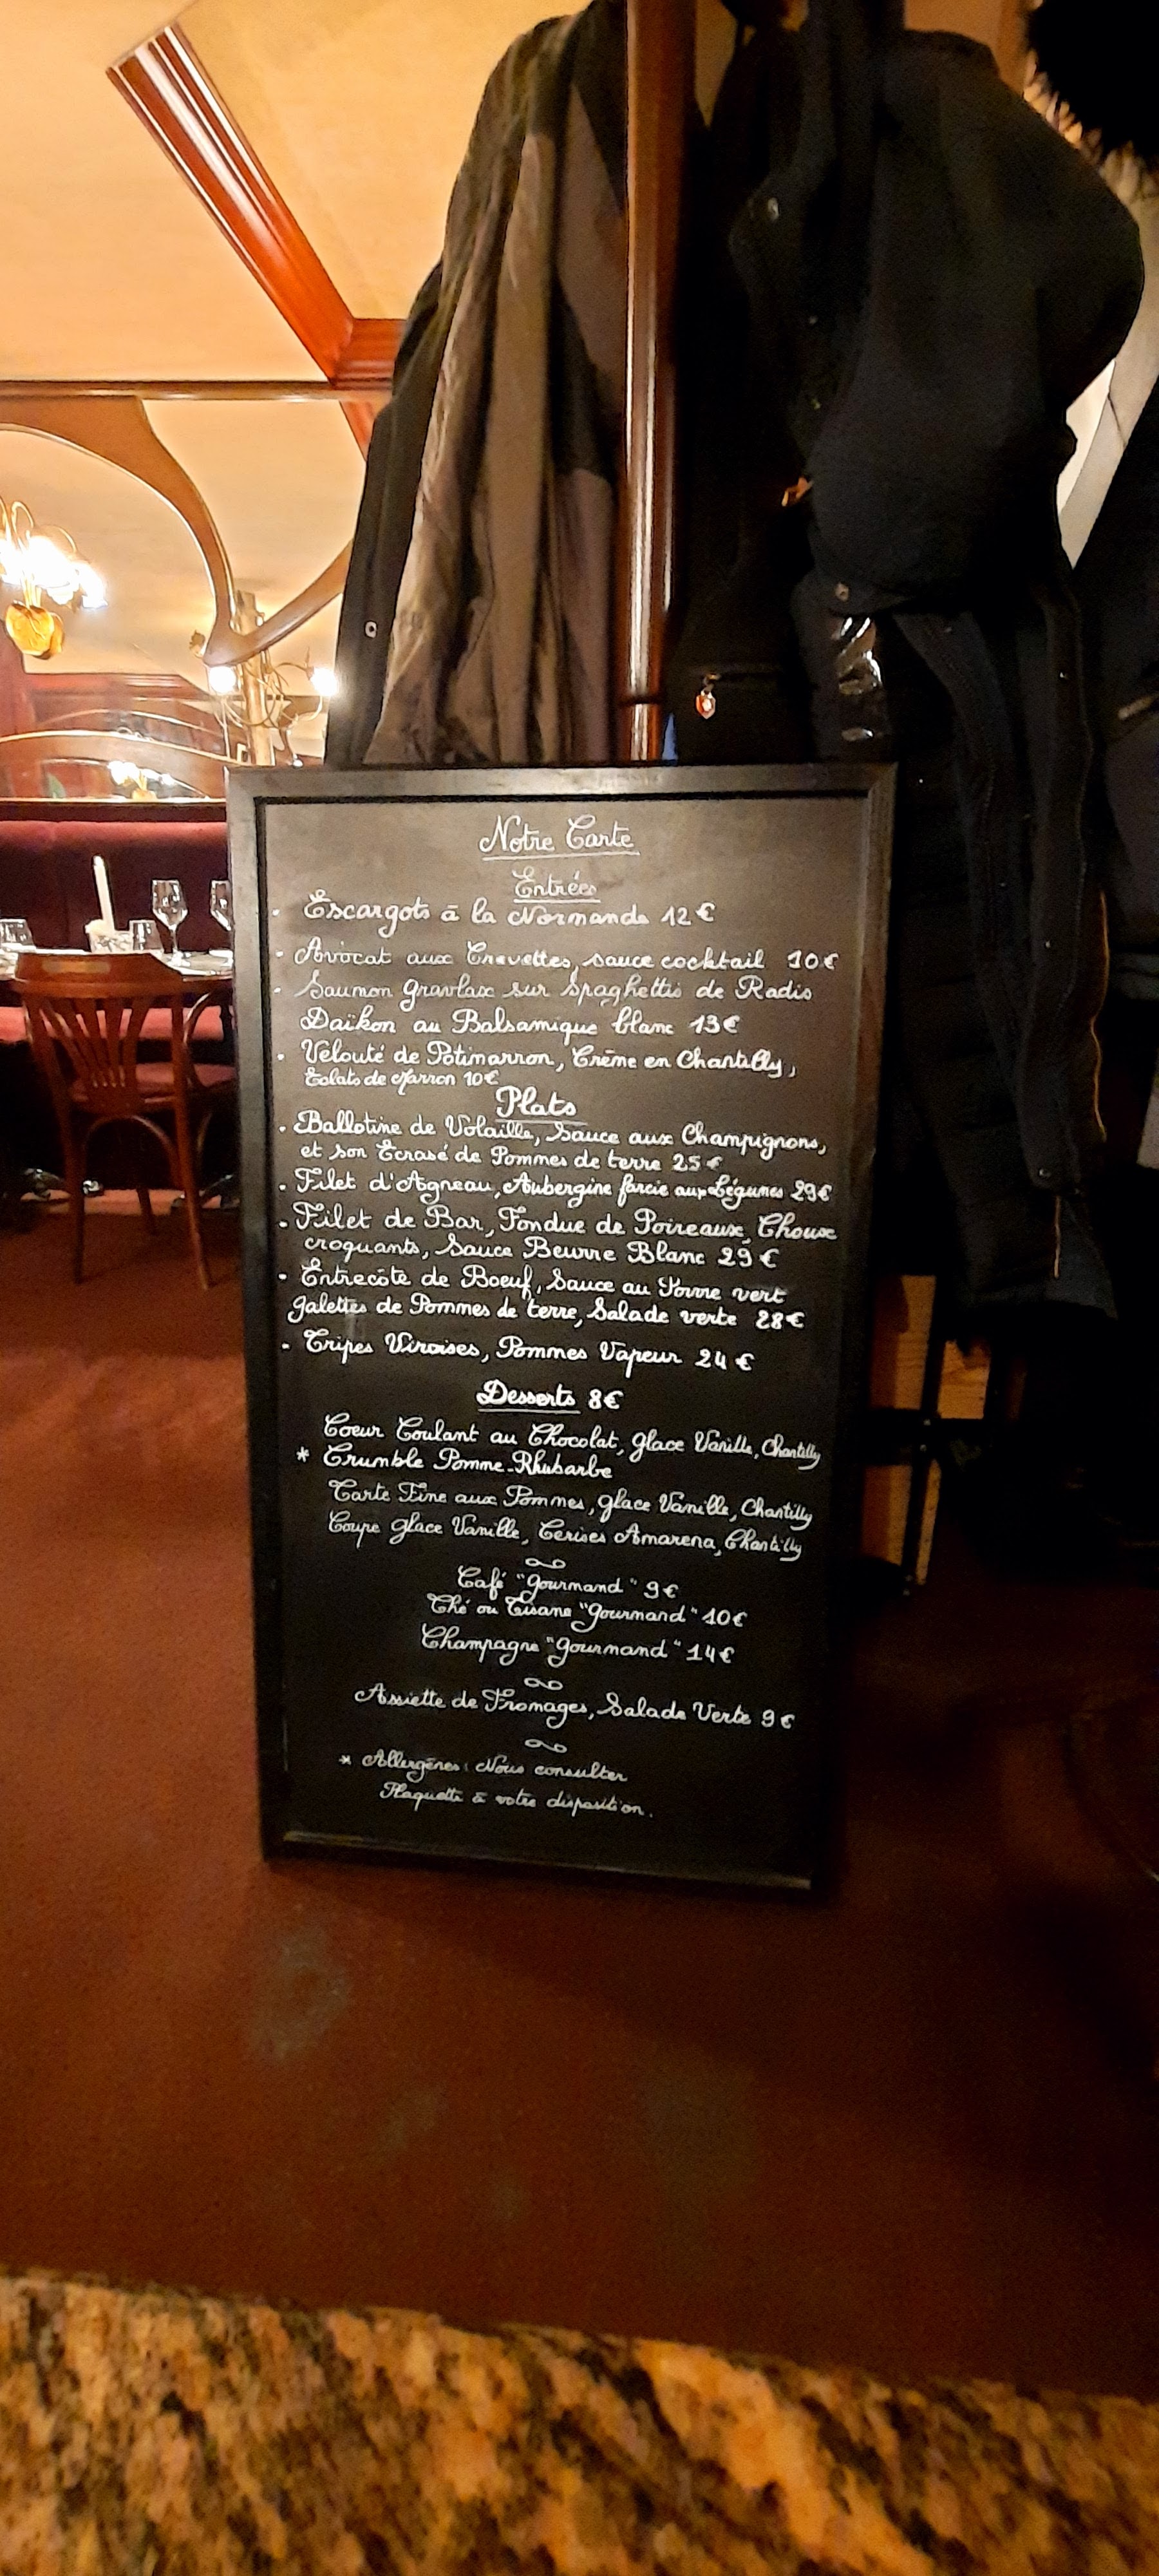 Notre Carte
Entrées
- Escargots à la Normande 12€
- Avocat aux Crevettes, sauce cocktail 10€
- Saumon gravlax sur Spaghettis de Radis
Daïkon au Balsamique blanc 13€
- Velouté de Potimarron, Crème en Chantilly,
Eclats de Marron 10€
Plats
- Ballotine de Volaille, Sauce aux Champignons,
et son Ecrasé de Pommes de terre 25€
- Filet d'Agneau, Aubergine farcie aux Légumes 29€
- Filet de Bar, Fondue de Poireaux, Choux
croquants, Sauce Beurre Blanc 29€
- Entrecôte de Boeuf, Sauce au Poivre vert
galettes de Pommes de terre, Salade verte 28€
- Tripes Viroises, Pommes Vapeur 24€
Desserts 8€
Coeur Coulant au Chocolat, glace Vanille, Chantilly
* Crumble Pomme-Rhubarbe
Tarte Fine aux Pommes, glace Vanille, Chantilly
Coupe glace Vanille, Cerises Amarena, Chantilly
Café "gourmand" 9€
Thé ou Tisane "gourmand" 10€
Champagne "gourmand" 14€
Assiette de Fromages, Salade Verte 9€
* Allergènes: Nous consulter
Plaquette à votre disposition.